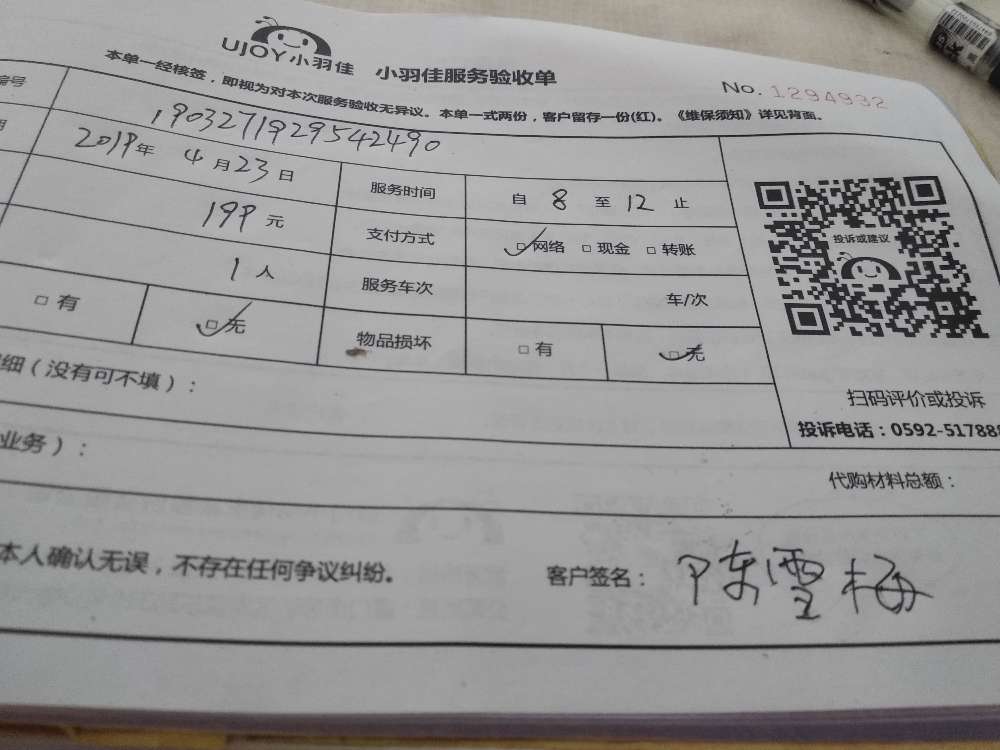 UJOY小羽佳 小羽佳服务验收单
No. 1294932
本单一经核签，即视为对本次服务验收无异议。本单一式两份，客户留存一份(红)。《维保须知》详见背面。
编号 1903271929542490
2019年 4月23日 服务时间 自 8 至 12 止
199元 支付方式 ☑网络 □现金 □转账
1人 服务车次 车/次
□有 ☑无 物品损坏 □有 ☑无
投诉或建议
扫码评价或投诉
细（没有可不填）：
投诉电话：0592-517888
业务）：
代购材料总额：
本人确认无误，不存在任何争议纠纷。 客户签名： 陈雪梅